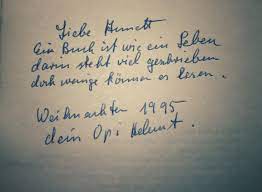 Liebe Annett
Ein Buch ist wie ein Leben
darin steht viel geschrieben
doch wenige können es lesen.
Weihnachten 1995
dein Opi Helmut.